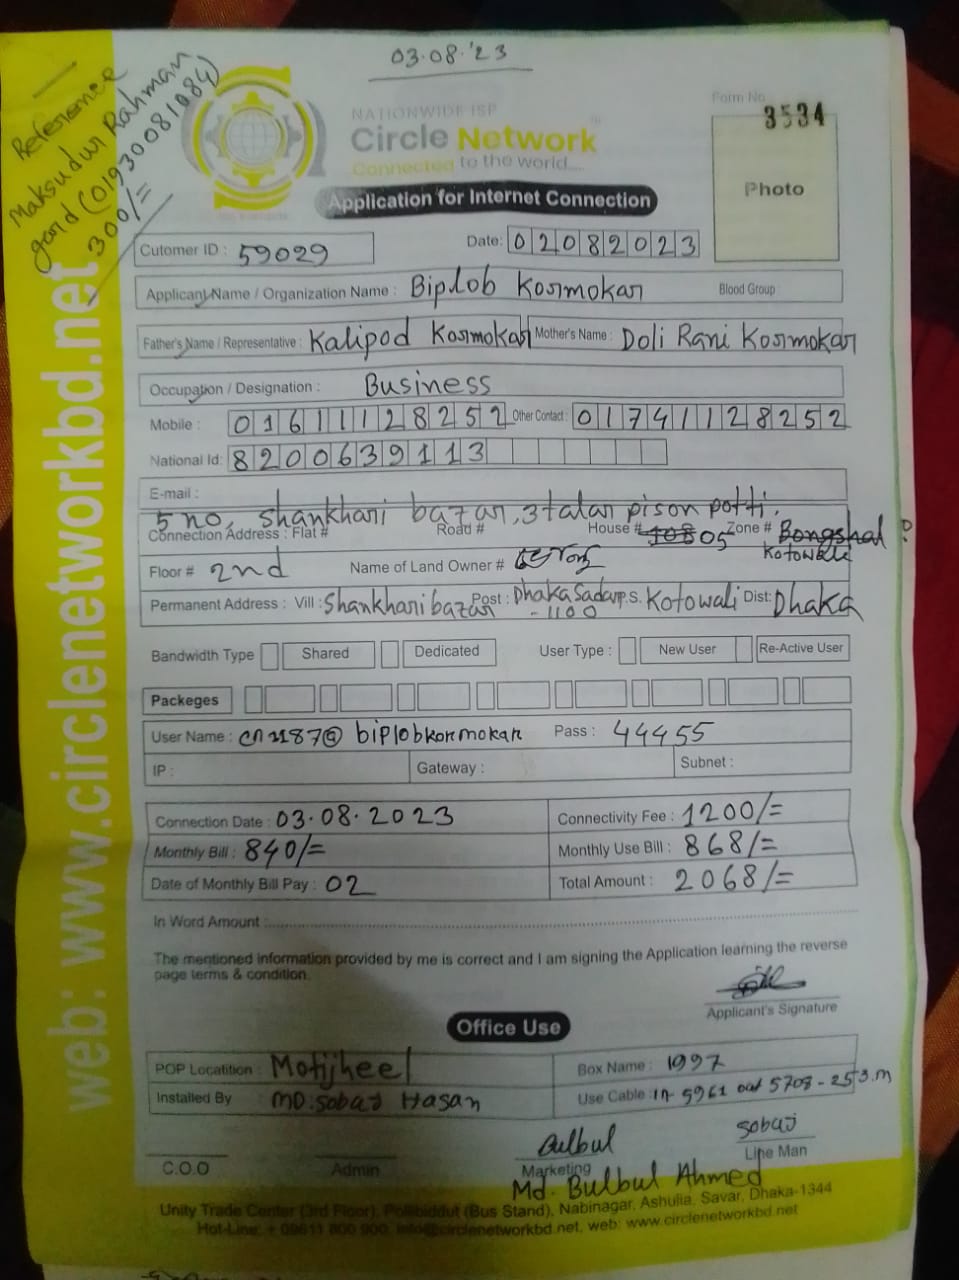 03.08.'23
Reference
Maksudur Rahman
gard (01930081084)
300/=
NATIONWIDE ISP
Circle Network
Connected to the world.....
Form No
3534
Photo
Application for Internet Connection
Cutomer ID : 59029
Date: 02082023
Applicant Name / Organization Name : Biplob Kormokar Blood Group :
Father's Name / Representative : Kalipod Kormokar Mother's Name : Doli Rani Kormokar
Occupation / Designation : Business
Mobile : 01611128252 Other Contact : 01741128252
National Id: 8200639113
E-mail :
5 no, shankhari bazar, 3 talar pison potti.
Connection Address : Flat # Road # House # 05 Zone # Bongshal ?
Kotowali
Floor # 2nd Name of Land Owner #
Permanent Address : Vill : Shankhari bazar Post : Dhaka Sadar -1100 P.S. Kotowali Dist: Dhaka
Bandwidth Type Shared Dedicated User Type : New User Re-Active User
Packeges
User Name : cn2187@biplobkormokar Pass : 44455
IP : Gateway : Subnet :
Connection Date : 03.08.2023 Connectivity Fee : 1200/=
Monthly Bill : 840/= Monthly Use Bill : 868/=
Date of Monthly Bill Pay : 02 Total Amount : 2068/=
In Word Amount :
The mentioned information provided by me is correct and I am signing the Application learning the reverse
page terms & condition.
Applicant's Signature
Office Use
POP Locatition : Motijheel Box Name : 1997
Installed By : MD: Sobaj Hasan Use Cable : in- 5961 out 5708 - 253.m
Bulbul sobaj
C.O.O Admin Marketing Line Man
Md. Bulbul Ahmed
Unity Trade Center (3rd Floor), Pollibiddut (Bus Stand), Nabinagar, Ashulia, Savar, Dhaka-1344
Hot-Line: + 09611 800 900, info@circlenetworkbd.net, web: www.circlenetworkbd.net
web: www.circlenetworkbd.net